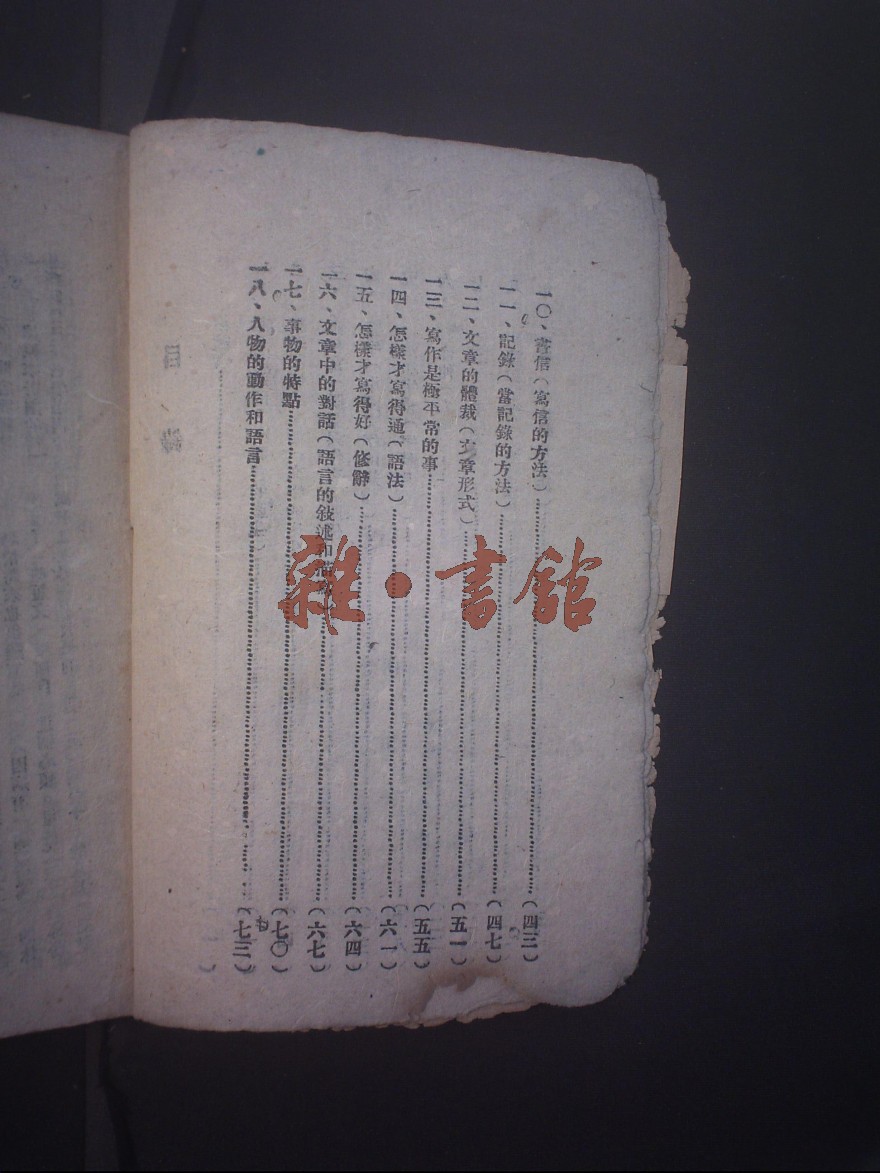 一〇、書信（寫信的方法）……（四三）
一一、記錄（當記錄的方法）……（四七）
一二、文章的體裁（文章形式）……（五一）
一三、寫作是極平常的事……（五五）
一四、怎樣才寫得通（語法）……（六一）
一五、怎樣才寫得好（修辭）……（六四）
一六、文章中的對話（語言的敍述和……（六七）
一七、事物的特點……（七〇）
一八、人物的動作和語言……（七三）
雜·書館